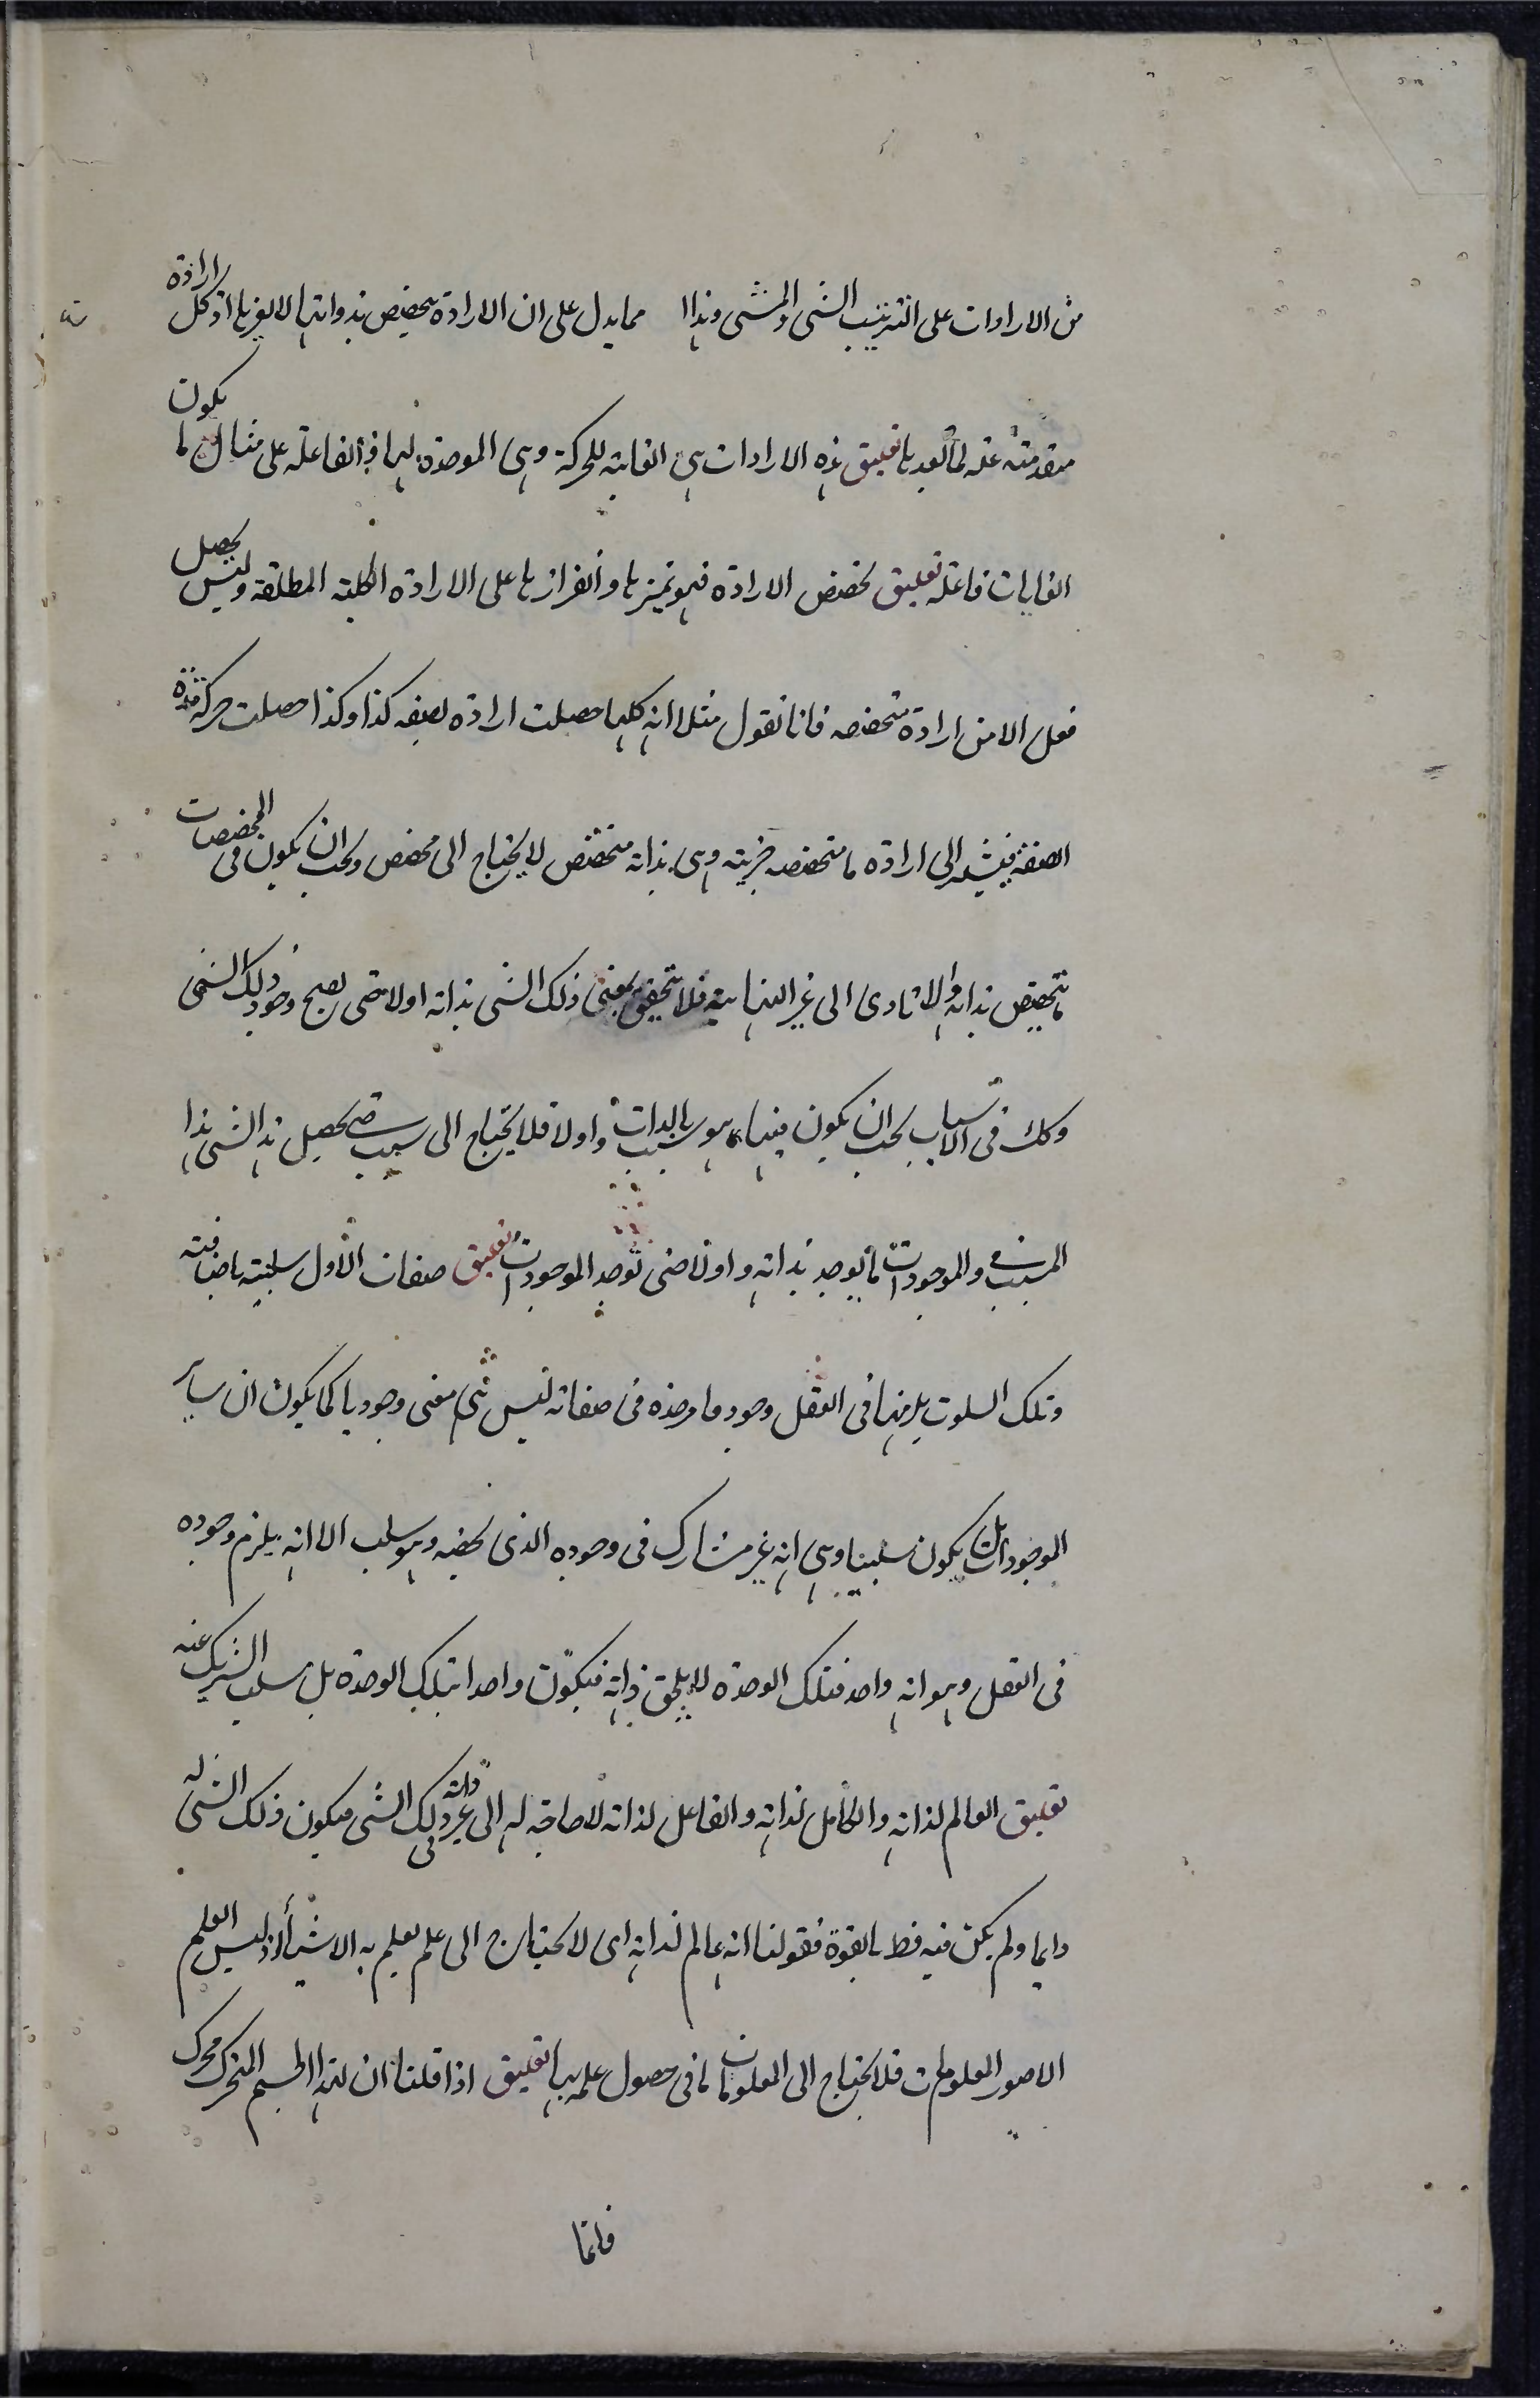 من الارادات على الترتيب الشئ والمشئ وهذا مما يدل على ان الارادة يتخصص بذواتها لا لغيرها اذ كل ارادة
متقدمة علة لما بعدها تعليق هذه الارادات هى الغاية للحركة وهى الموجدة لها فهى الفاعلة على مثال ما يكون
الغايات فاعلة تعليق تخصص الارادة فهو تميزها وانفرازها على الارادة الكلية المطلقة وليس يحصل
فعل الا من ارادة متخصصه فانا نقول مثلا انه كلما حصلت ارادة بصفه كذا وكذا حصلت حركة هذه
الصفة فيشير الى ارادة ما متخصصه جزئية وهى بذاته متخصص لا يحتاج الى مخصص ويجب ان يكون فى المخصصات
ما يتخصص بذاته والا تادى الى غير النهاية فلا يتحقق بمعنى ذلك الشئ بذاته اولا حتى يصح وجود ذلك الشئ
وكك فى الاسباب يجب ان يكون فيها ما هو سبب بالذات واولا فلا يحتاج الى سبب حتى يحصل هذا الشئ هذا
المسبب والموجودات ما يوجد بذاته واولا حتى توجد الموجودات تعليق صفات الاول سلبية واضافية
وتلك السلوب يلزمها فى العقل وجود فالوحدة فى صفاته ليس هى معنى وجوديا كما يكون ان ساير
الموجودات بل يكون سلبيا وهى انه غير مشارك فى وجوده الذى يخصه وهو سلب الا انه يلزم وجوده
فى العقل وهو انه واحد فتلك الوحدة لا يلحق ذاته فيكون واحدا بتلك الوحدة بل سلب الشريك عنه
تعليق العالم لذاته والكامل لذاته والفاعل لذاته لا حاجة له الى غير ذاته فى ذلك الشئ فيكون ذلك الشئ له
دايما ولم يكن فيه قط بالقوة فقولنا انه عالم لذاته اى لا يحتاج الى علم يعلم به الاشياء اذ ليس العلم
الا صور المعلومات فلا يحتاج الى المعلومات فى حصول علمه بها تعليق اذا قلنا ان لهذا الجسم المتحرك محرك
فانما